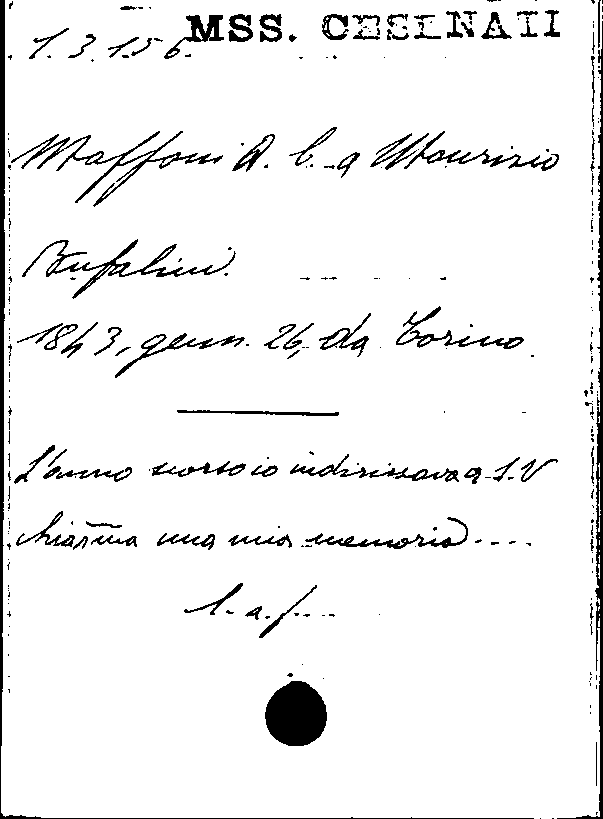 MSS. CESENATI
1.3.156.
Maffoni A. C. a Maurizio
Bufalini.
1843, genn. 26, da Torino
L'anno scorso io indirizzava a S.V
chiar̅ma una mia memoria....
l. a. f....